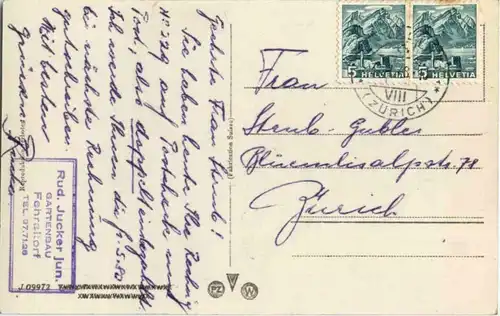 Geehrte Frau Steub!
Sie haben heute Ihre Rechng
No 229 auf Postcheck und
Post, also doppelt einbezahlt.
Ich werde Ihnen die Fr. 5.80
bei nächster Rechnung
gutschreiben.
Mit besten
Grüssen
Rud. Jucker jun.
GARTENBAU
Fehraltorf
TEL. 97.71.26
J 09972
PZ
W
5 HELVETIA
5 HELVETIA
VIII
(ZÜRICH)
Frau
Steub-Gubler
Blüemlisalpstr. 71
Zürich